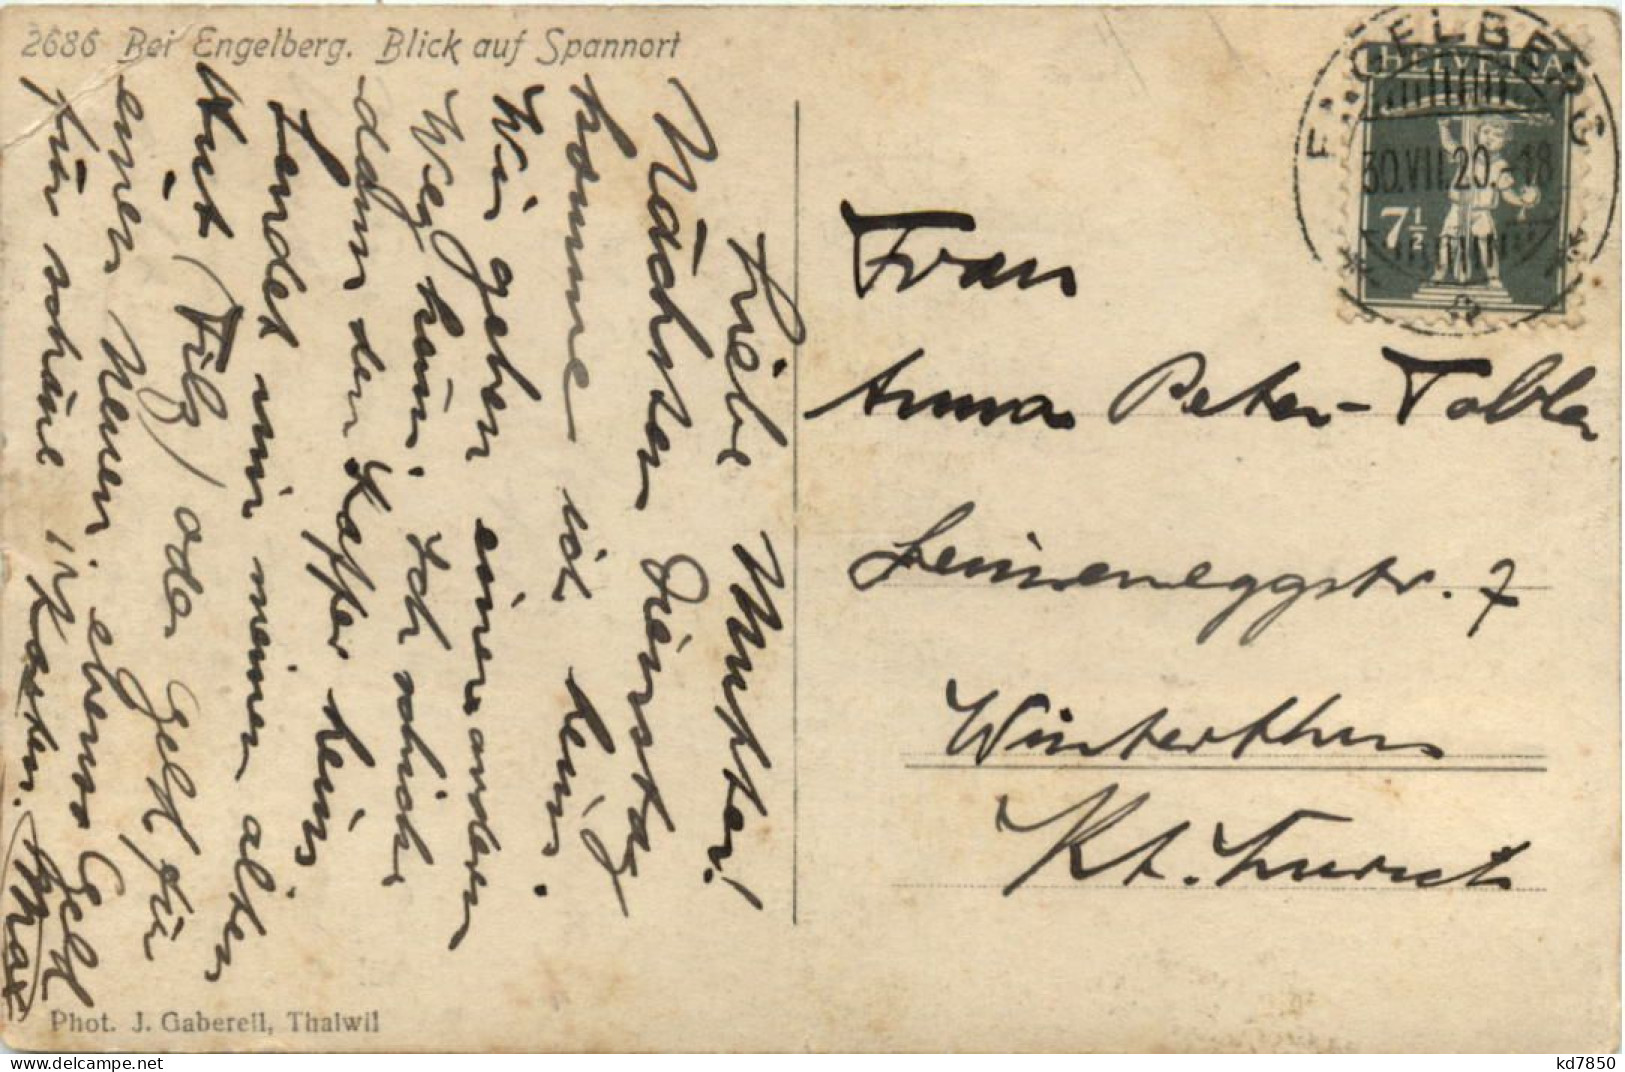 2686 Bei Engelberg. Blick auf Spannort
Liebe Mutter!
Nächsten Dienstag
komme ich heim.
Wir gehen einen anderen
Weg heim. Ich schicke
dann den Koffer heim
Sendet mir meinen alten
Hut (Filz) oder Geld für
einen Neuen, ebenso Geld
für schöne Karten. Max
Phot. J. Gaberell, Thalwil
ENGELBERG
30.VII.20.-18
HELVETIA
7½
Frau
Anna Peter-Tobler
Leimeneggstr. 7
Winterthur
Kt. Zürich
kd7850